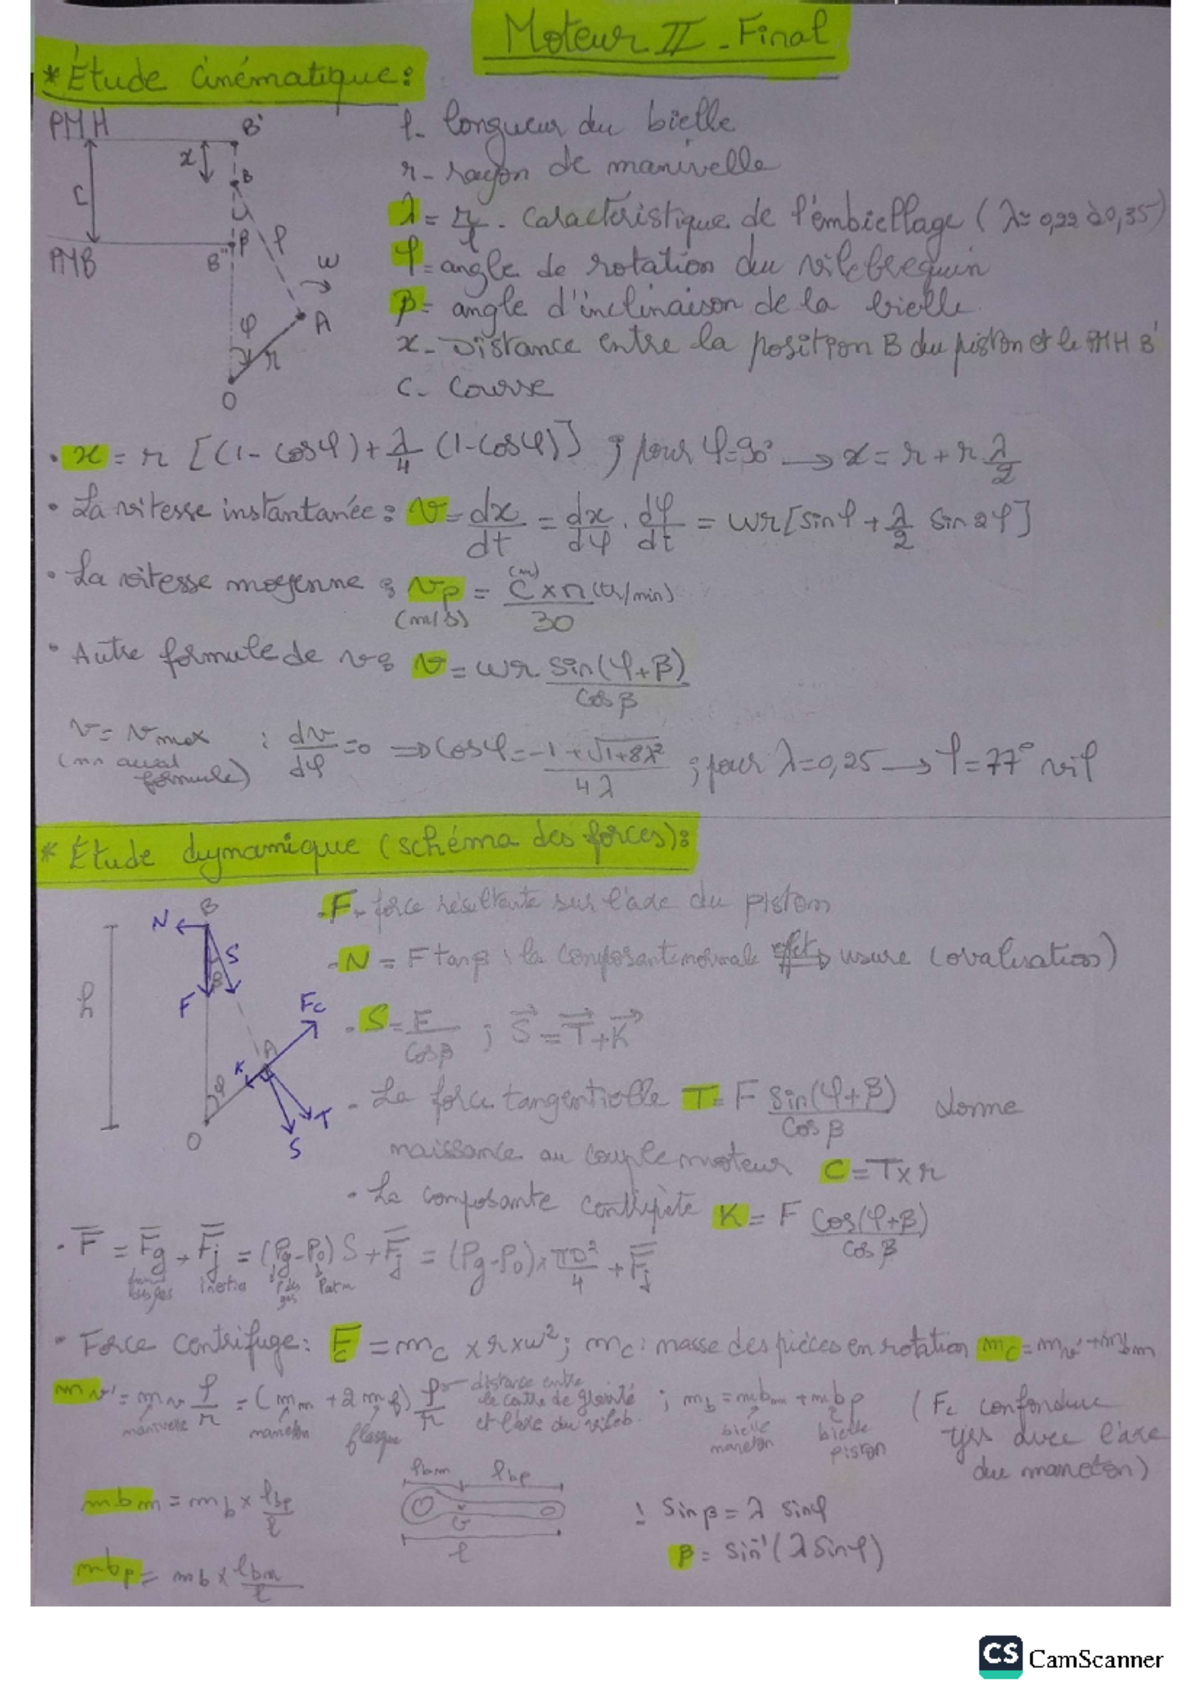 Moteur II - Final
* Étude cinématique:
PMH
B'
x
B
C
β
l
PMB
B''
ω
φ
A
r
O
l - longueur du bielle
r - rayon de manivelle
λ = r/l - caractéristique de l'embiellage (λ = 0,22 à 0,35)
φ = angle de rotation du vilebrequin
β = angle d'inclinaison de la bielle
x - Distance entre la position B du piston et le PMH B'
C - Course
• x = r [(1 - cosφ) + λ/4 (1 - cosφ)] ; pour φ = 90° → x = r + r λ/2
• La vitesse instantanée : v = dx/dt = dx/dφ . dφ/dt = wr [sinφ + λ/2 sin 2φ]
• La vitesse moyenne : vp (m/s) = C (m) x n (tr/min) / 30
• Autre formule de v : v = wr sin(φ+β) / cosβ
v = vmax : dv/dφ = 0 ⇒ cosφ = -1 + √(1+8λ²) / 4λ ; pour λ = 0,25 → φ = 77° vil
formule)
* Étude dynamique (schéma des forces):
B
N
S
β
F
h
Fc
K
A
φ
T
O
S
• F - force résultante sur l'axe du piston
• N = F tanβ : la composante normale effet → usure (ovalisation)
• S = F / cosβ ; S = T + K
- La force tangentielle T = F sin(φ+β) / cosβ donne
naissance au couple moteur C = T x r
• La composante centripète K = F cos(φ+β) / cosβ
• F = Fg + Fj = (Pg - P0) S + Fj = (Pg - P0) x πD²/4 + Fj
inertie
P des gaz
Patm
• Force centrifuge : Fc = mc x r x w² ; mc : masse des pièces en rotation mc = mv' + mbm
mv' = mv ρ/r = (mm + 2mf) ρ/r - distance entre le centre de gravité et l'axe du vileb. ; mb = mbm + mbp (Fc confondue
manivelle
maneton
flasque
bielle maneton
bielle piston
avec l'axe
du maneton)
mbm = mb x lbp / l
lbm
lbp
G
l
: sinβ = λ sinφ
β = sin⁻¹(λ sinφ)
mbp = mb x lbm / l
CS CamScanner